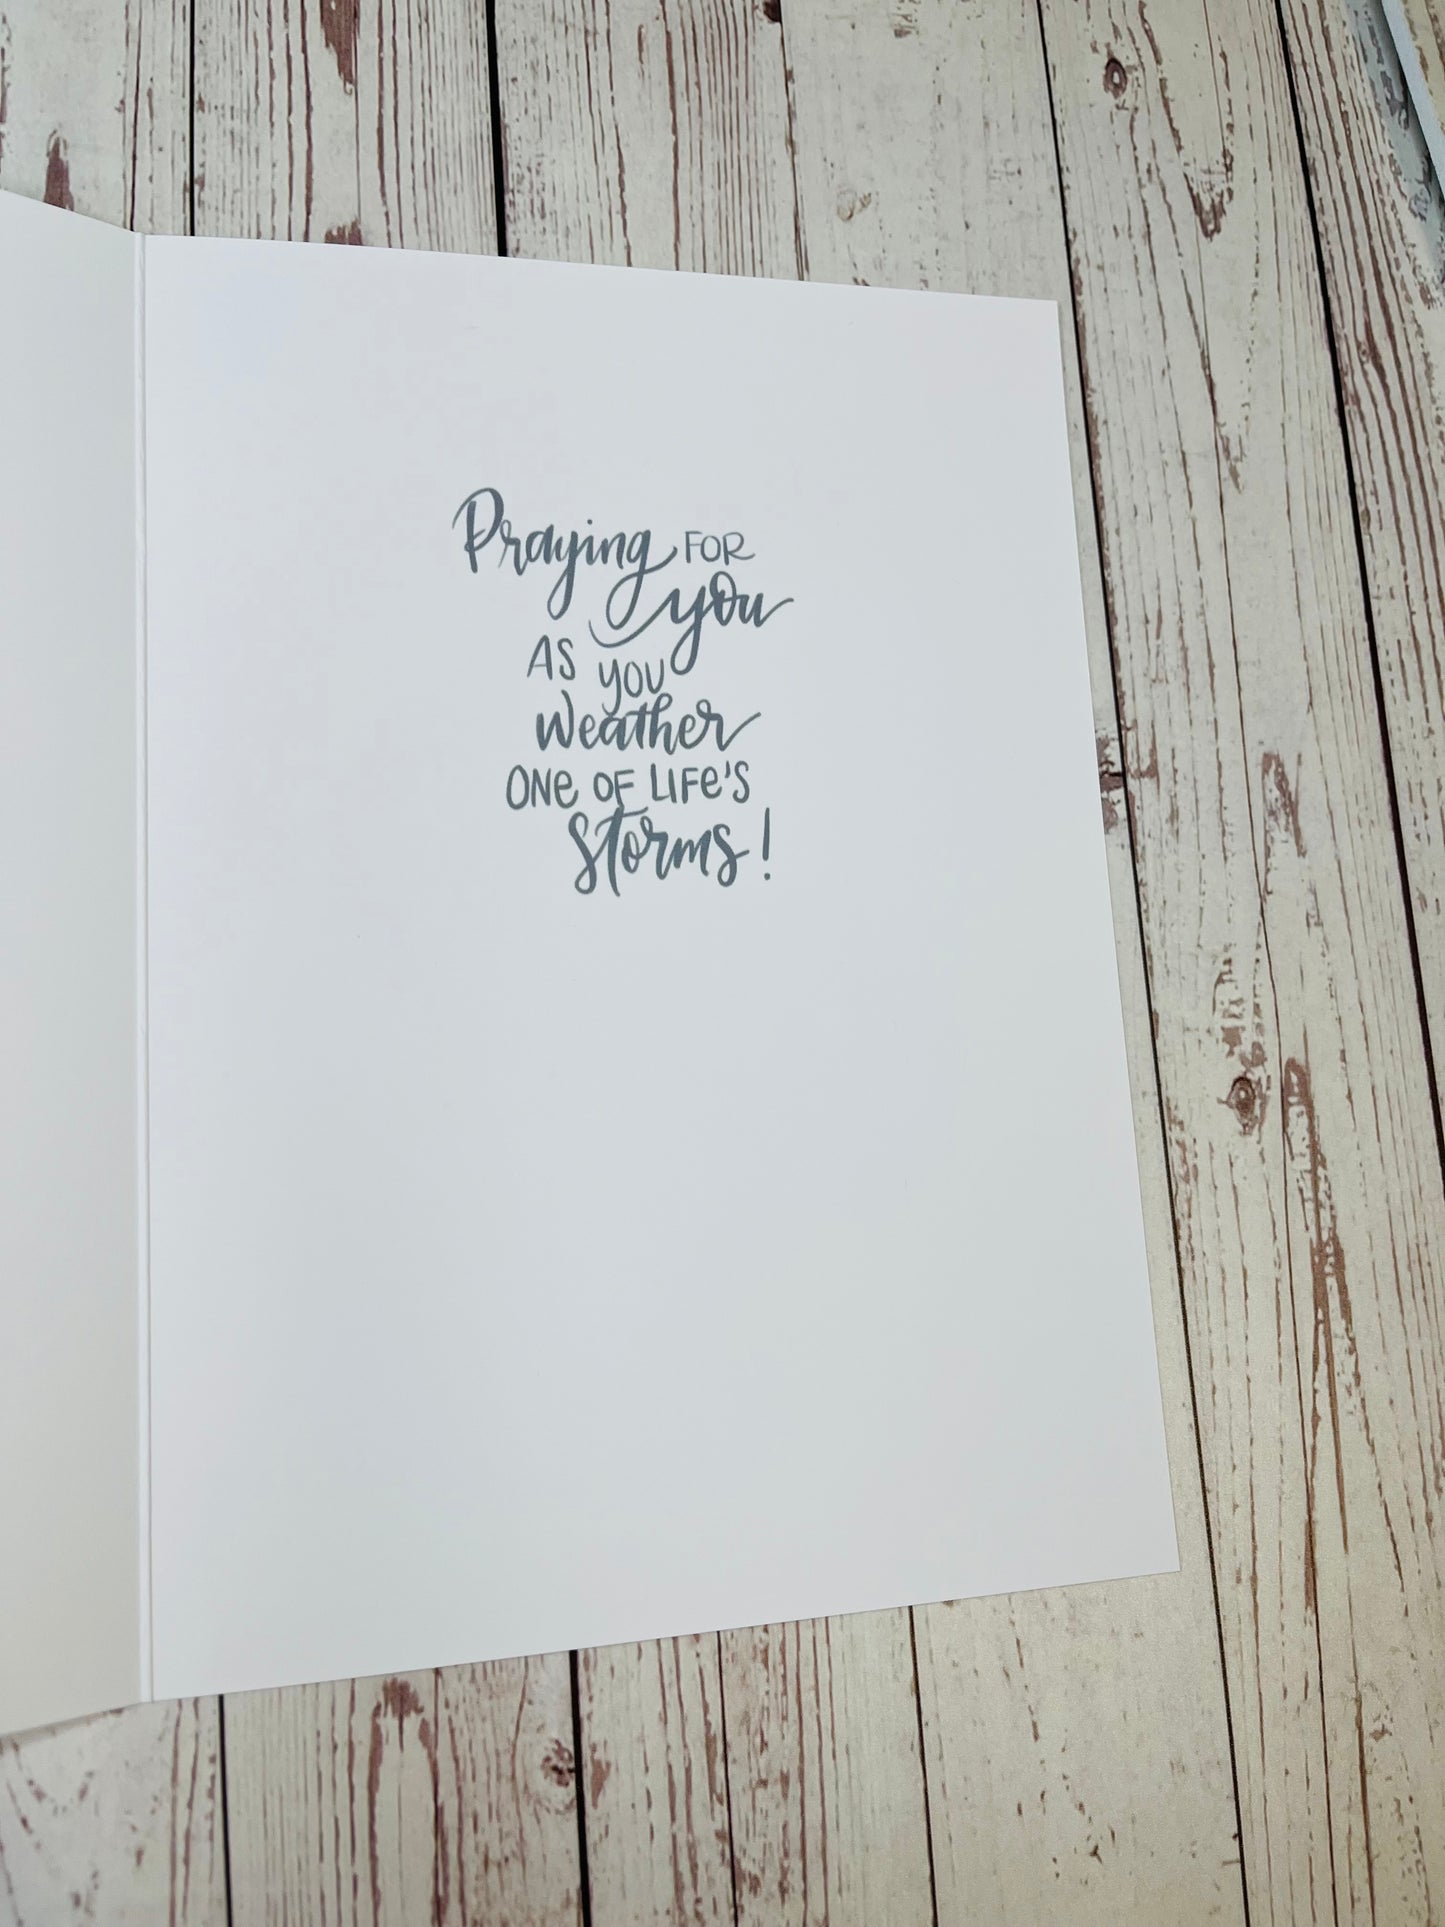 Praying FOR
you
AS YOU
Weather
ONE OF LIFE'S
Storms!